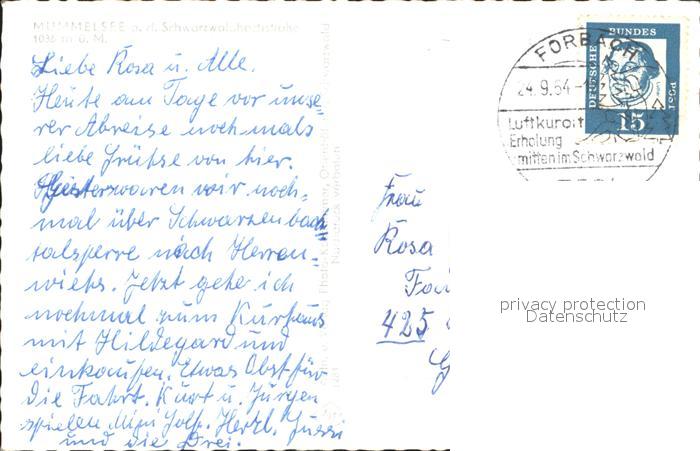 MUMMELSEE a. d. Schwarzwaldhochstraße
1036 m ü. M.
Liebe Rosa u. Alle.
Heute am Tage vor unse-
rer Abreise nochmals
liebe Grüße von hier.
Gestern waren wir noch-
mal über Schwarzenbach
talsperre nach Herren-
wies. Jetzt gehe ich
nochmal zum Kurhaus
mit Hildegard und
einkaufen. Etwas Obst für
die Fahrt. Kurt u. Jürgen
spielen Mini Golf. Herzl.
und die Drei.
FORBACH
24.9.64
Luftkurort
Erholung
mitten im Schwarzwald
DEUTSCHE BUNDESPOST
15
Frau
Rosa
425
privacy protection
Datenschutz